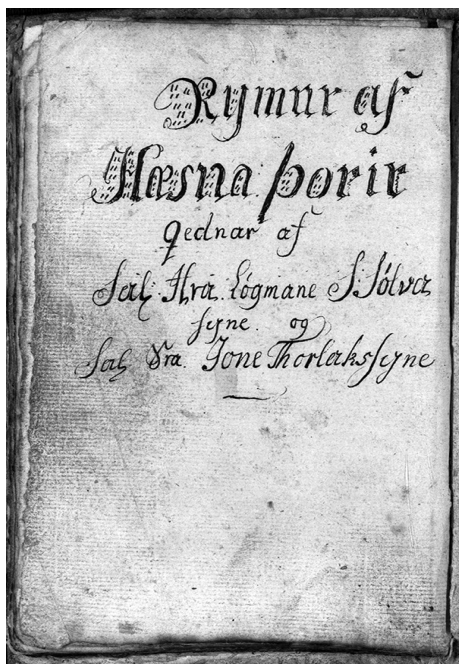 Rymur af
Hæsna þorir
qednar af
Sal: Hra. Lögmane S. Sólva
syne og
Sal: Sra. Jone Thorlakssyne